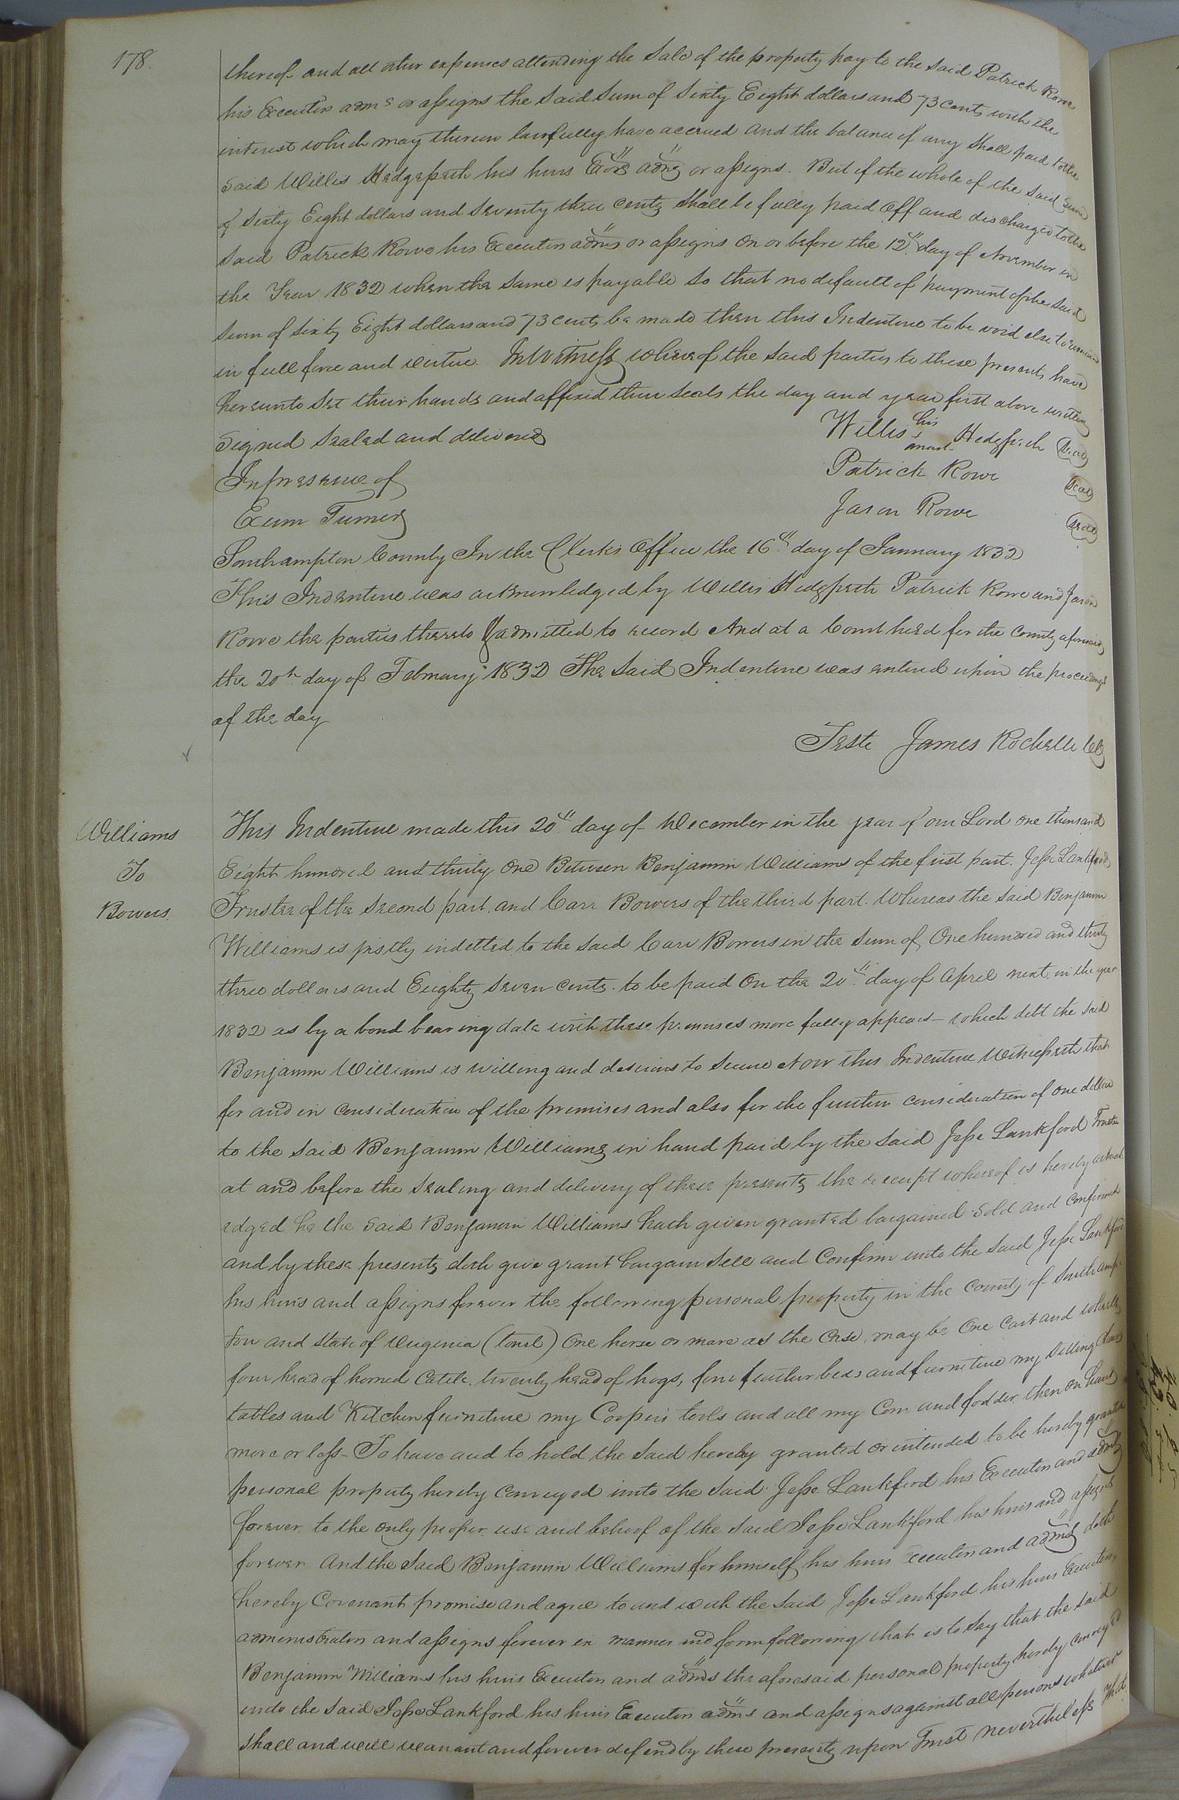 178.
thereof and all other expenses attending the Sale of the property pay to the said Patrick Rowe
his Executor admrs or assigns the said Sum of Sixty Eight dollars and 73 cents with the
interest which may thereon lawfully have accrued and the balance if any shall paid to the
said Willis Hedgepeth his heirs Exors admrs or assigns. But if the whole of the said sum
of Sixty Eight dollars and Seventy three cents shall be fully paid off and discharged to the
said Patrick Rowe his Executor admrs or assigns on or before the 12th day of November in
the Year 1832 when the same is payable so that no default of payment of the said
sum of Sixty Eight dollars and 73 cents be made then this Indenture to be void else to remain
in full force and virtue. In Witness whereof the said parties to these presents have
hereunto Set their hands and affixed their seals the day and year first above written
Signed Sealed and delivered
In presence of
Exum Turner
Willis his mark Hedgpeth Seal
Patrick Rowe Seal
Jason Rowe Seal
Southampton County In the Clerks Office the 16th day of January 1832
This Indenture was acknowledged by Willis Hedgpeth Patrick Rowe and Jason
Rowe the parties thereto & admitted to record And at a Court held for the County aforesaid
the 20th day of February 1832 The said Indenture was entered upon the proceedings
of the day
Teste James Rochelle Clk
Williams
To
Bowers
This Indenture made this 20th day of December in the year of our Lord one thousand
Eight hundred and thirty One Between Benjamin Williams of the first part. Jesse Lankford
Trustee of the Second part, and Carr Bowers of the third part. Whereas the said Benjamin
Williams is justly indetted to the said Carr Bowers in the Sum of One hundred and thirty
three dollars and Eighty Seven cents. to be paid On the 20th day of April next in the year
1832 as by a bond bearing date with these premises more fully appears which debt the said
Benjamin Williams is willing and desirous to Secure Now this Indenture Witnesseth that
for and in consideration of the premises and also for the further consideration of one dollar
to the said Benjamin Williams in hand paid by the said Jesse Lankford Trustee
at and before the Sealing and delivery of these presents the receipt whereof is hereby acknowl
edged he the said Benjamin Williams hath given granted bargained Sold and confirmed
and by these presents doth give grant bargain Sell and Confirm unto the said Jesse Lankford
his heirs and assigns forever the following personal property in the County of Southamp-
ton and State of Virginia (towit) One horse or mare as the Case may be One Cart and wheels
four head of horned Cattle. twenty head of hogs, four feather beds and furniture my Sitting chairs
tables and Kitchen furniture my Coopers tools and all my Corn and fodder then on hand
more or less - To have and to hold the said hereby granted or intended to be hereby granted
personal property hereby conveyed unto the said Jesse Lankford his Executor and admrs
forever to the only proper use and behoof of the said Jesse Lankford his heirs and assigns
forever And the said Benjamin Williams for himself his heirs Executors and admrs doth
hereby Covenant promise and agree to and with the said Jesse Lankford his heirs Executors
administrators and assigns forever in manner and form following, that is to Say that the said
Benjamin Williams his heirs Executors and admrs the aforesaid personal property hereby conveyed
unto the said Jesse Lankford his heirs Executors admrs and assigns against all persons whatever
shall and will warrant and forever defend by these presents upon Trust nevertheless that